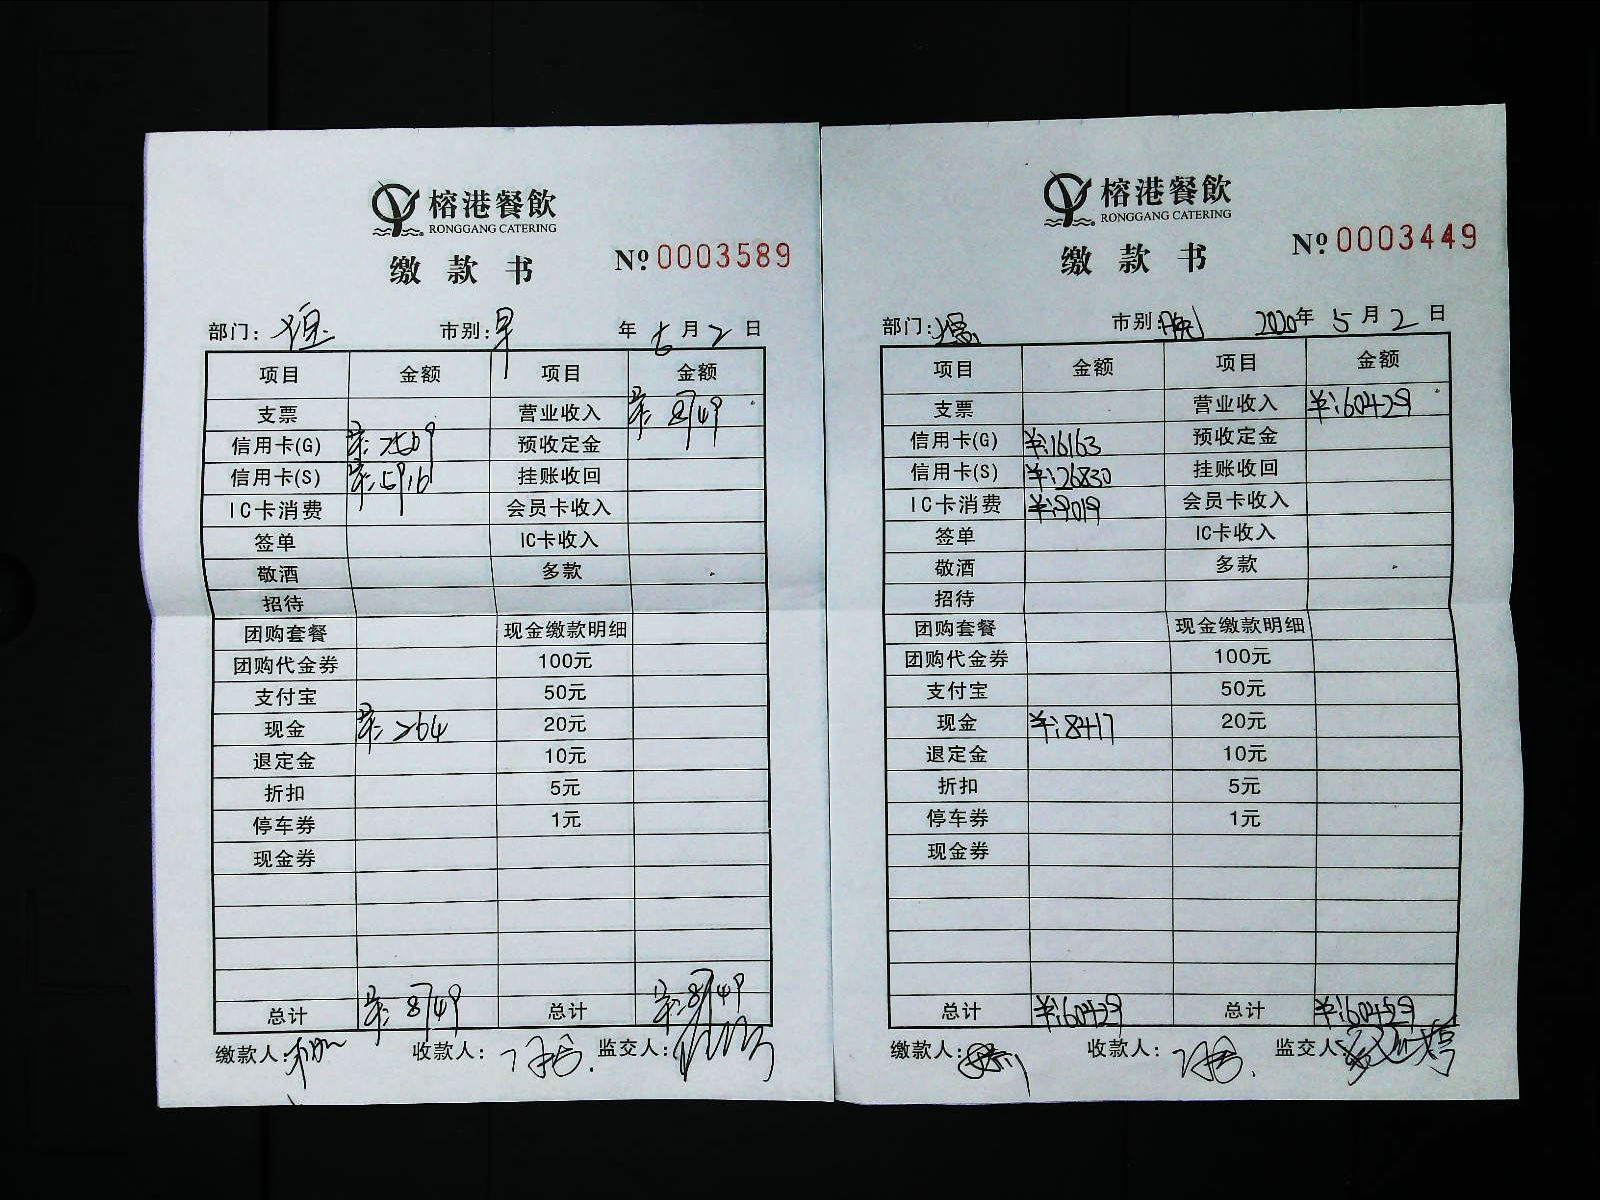 榕港餐飲
RONGGANG CATERING
缴款书
№ 0003589
部门: 市别: 早 年 5 月 2 日
项目 金额 项目 金额
支票 营业收入 ¥: 8749
信用卡(G) ¥: 2569 预收定金
信用卡(S) ¥: 5916 挂账收回
IC卡消费 会员卡收入
签单 IC卡收入
敬酒 多款
招待
团购套餐 现金缴款明细
团购代金券 100元
支付宝 50元
现金 ¥: 264 20元
退定金 10元
折扣 5元
停车券 1元
现金券
总计 ¥: 8749 总计 ¥: 8749
缴款人: 收款人: 监交人:
榕港餐飲
RONGGANG CATERING
缴款书
№ 0003449
部门: 市别: 晚 2020 年 5 月 2 日
项目 金额 项目 金额
支票 营业收入 ¥: 60429
信用卡(G) ¥: 16163 预收定金
信用卡(S) ¥: 26830 挂账收回
IC卡消费 ¥: 9019 会员卡收入
签单 IC卡收入
敬酒 多款
招待
团购套餐 现金缴款明细
团购代金券 100元
支付宝 50元
现金 ¥: 8417 20元
退定金 10元
折扣 5元
停车券 1元
现金券
总计 ¥: 60429 总计 ¥: 60429
缴款人: 收款人: 监交人: